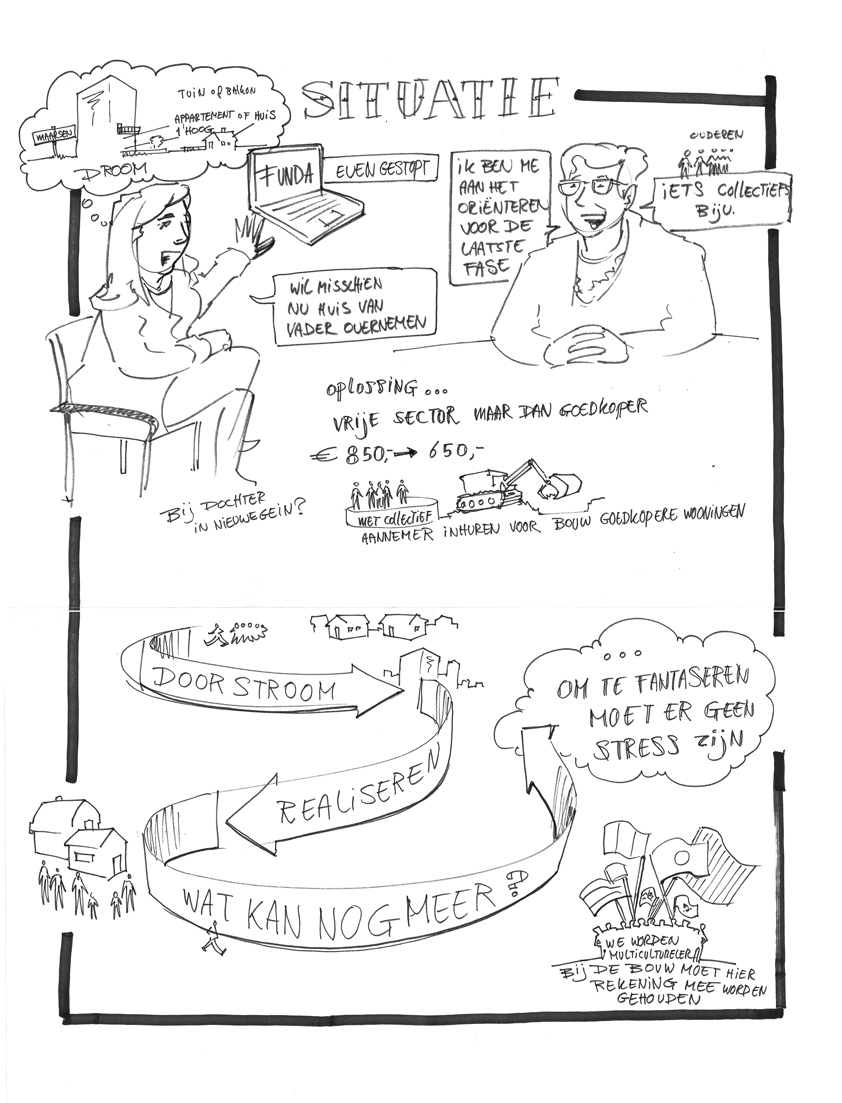 SITUATIE
TUIN OF BALKON
APPARTEMENT OF HUIS
1 HOOG
MAARSEN
DROOM
FUNDA
EVEN GESTOPT
WIL MISSCHIEN
NU HUIS VAN
VADER OVERNEMEN
iK BEN ME
AAN HET
ORIËNTEREN
VOOR DE
LAATSTE
FASE
OUDEREN
iETS COLLECTIEFS
BIJV.
OPLOSSING ...
VRIJE SECTOR MAAR DAN GOEDKOPER
€ 850,- → 650,-
BIJ DOCHTER
IN NIEUWEGEIN?
MET COLLECTIEF
AANNEMER INHUREN VOOR BOUW GOEDKOPERE WOONINGEN
DOORSTROOM
REALISEREN
WAT KAN NOG MEER?
...
OM TE FANTASEREN
MOET ER GEEN
STRESS ZIJN
WE WORDEN
MULTICULTURELER
BIJ DE BOUW MOET HIER
REKENING MEE WORDEN
GEHOUDEN